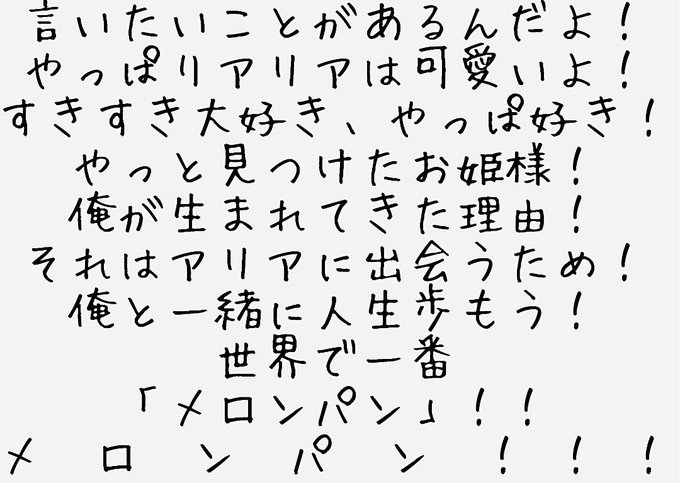 言いたいことがあるんだよ！
やっぱリアリアは可愛いよ！
すきすき大好き、やっぱ好き！
やっと見つけたお姫様！
俺が生まれてきた理由！
それはアリアに出会うため！
俺と一緒に人生歩もう！
世界で一番
「メロンパン」！！
メロンパン！！！